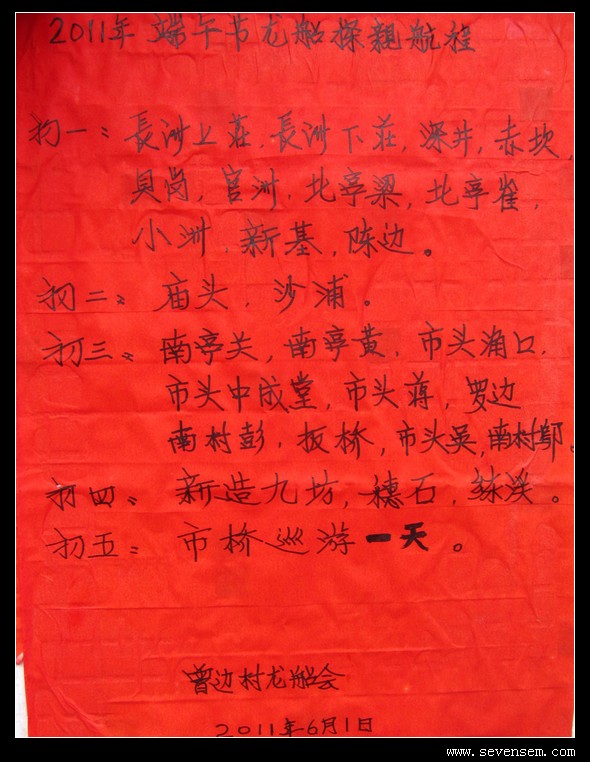 2011年 端午节龙船探親航程
初一：長洲上莊，長洲下莊，深井，赤坎，
貝岗，官洲，北亭梁，北亭崔，
小洲，新基，陈边。
初二：庙头，沙浦。
初三：南亭关，南亭黄，市头涌口，
市头中成堂，市头蒋，罗边
南村彭，板桥，市头吴，南村邬。
初四：新造九坊，穗石，练溪。
初五：市桥巡游一天。
曾边村龙船会
2011年6月1日
www.sevensem.com